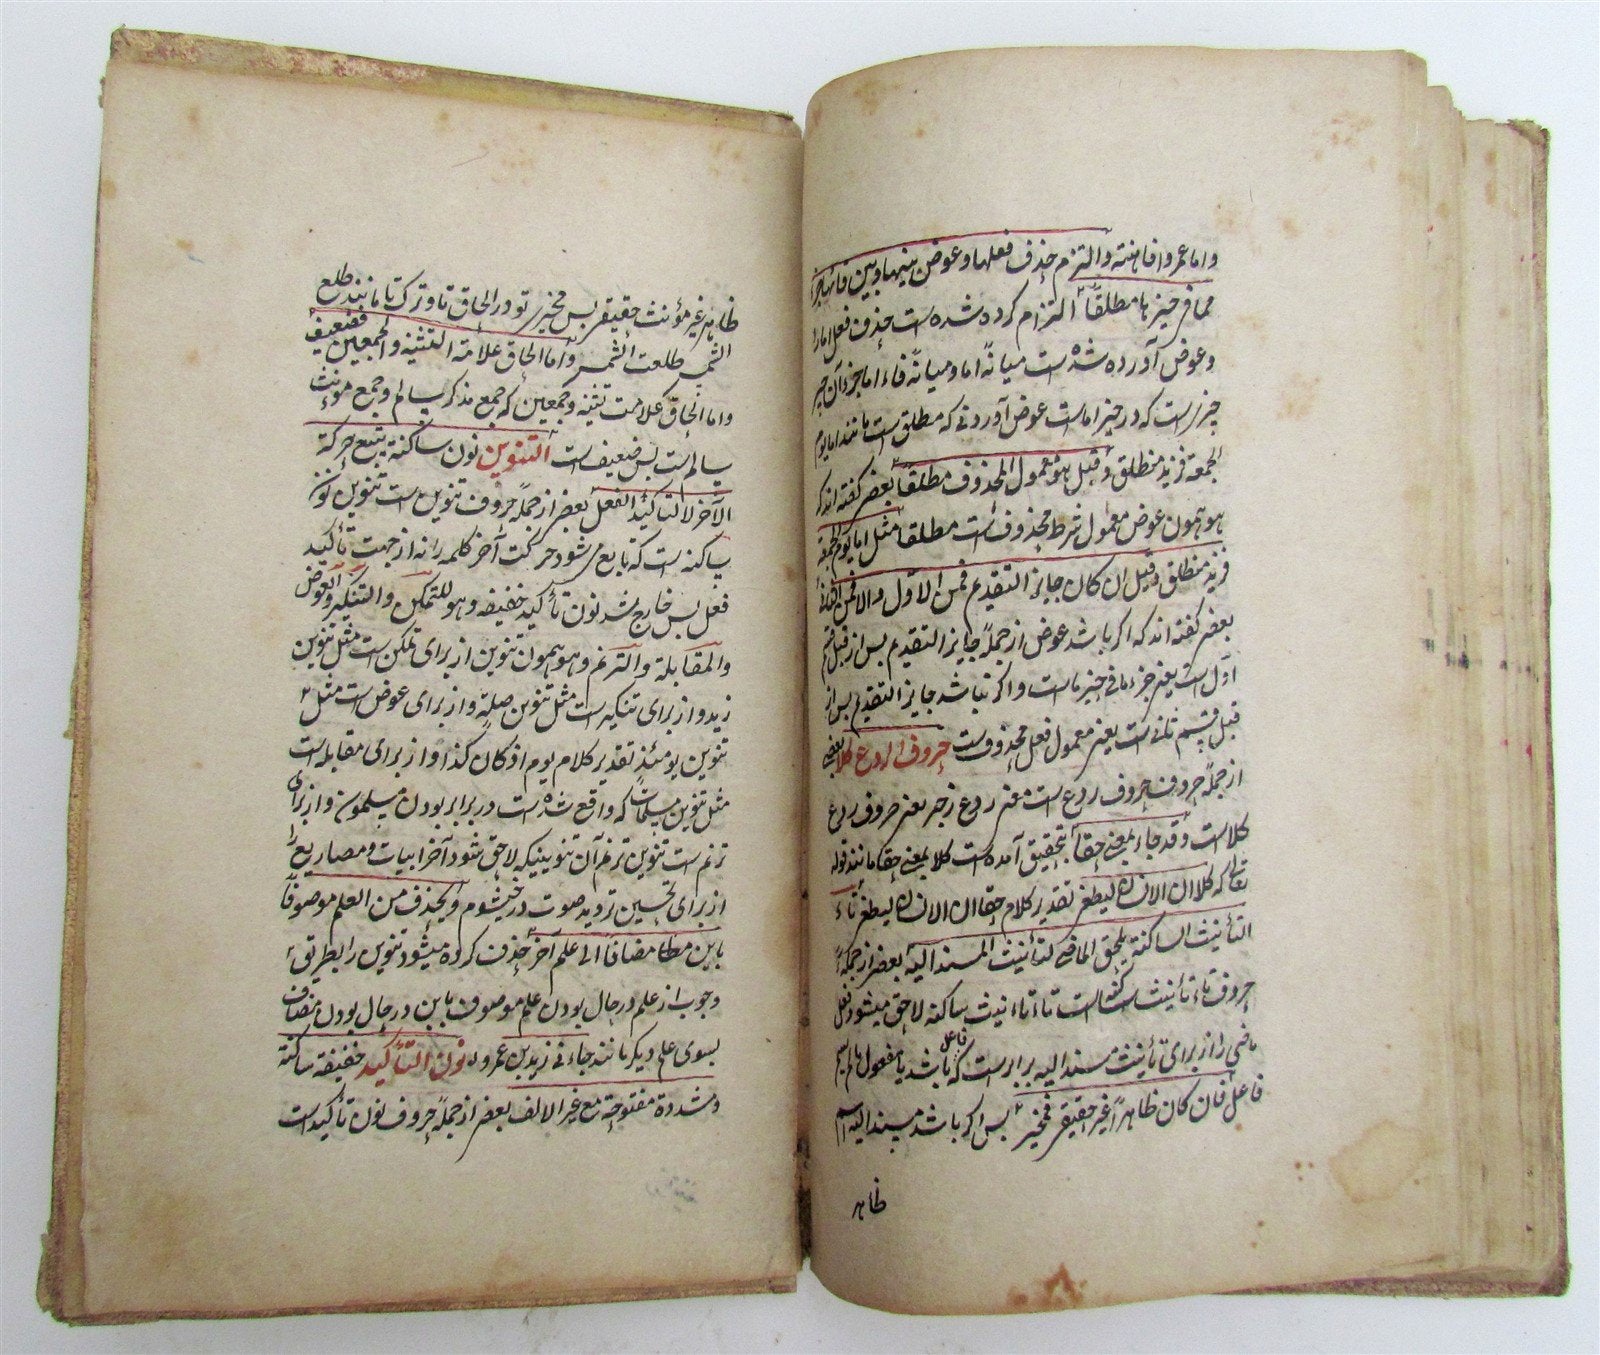 واما عمروا فاهنته والتزم حذف فعلها وعوض بينها وبين فائها جزء
مما فی حیزها مطلقاً التزام کرده شده است حذف فعل اما را
وعوض آورده شده است میانهٔ اما و میانهٔ فاء اما جزء از
چیزیست که در حیز اماست عوض آوردنی که مطلق است مانند اما یوم
الجمعة فزید منطلق وقیل هو معمول المحذوف مطلقاً بعضی گفته اند که
همون عوض معمول شرط محذوف است مطلقا مثل اما یوم الجمعة
فزید منطلق وقیل ان کان جایز التقدیم فمن الاول والا فمن الثانی
بعضی گفته اند که اگر باشد عوض از جمله جایز التقدیم پس از قبیل قسم
اول است یعنی جزء مافی حیزهاست واگر نباشد جایز التقدیم پس از
قبیل قسم ثانی است یعنی معمول فعل محذوف است حروف الردع کلا بعضی
از جمله حروف حروف ردع است معنی ردع زجر یعنی حروف ردع
کلا است وقد جاء بمعنی حقاً بتحقیق آمده است کلا بمعنی حقا مانند قوله
تعالی که کلا ان الانسان لیطغی تقدیر کلام حقا ان الانسان لیطغی تاء
التأنیث الساکنة یلحق الماضی لتأنیث المسند الیه بعضی از جملهٔ
حروف تاء تأنیث ساکنه است تاء تأنیث ساکنه لاحق میشود فعل
ماضی را از برای تأنیث مسند الیه برابرست که فاعل باشد یا مفعول مالم یسم
فاعل فان کان ظاهراً غیر حقیقی فمخیر پس اگر باشد مسند الیه اسم
ظاهر
ظاهر غیر مؤنث حقیقی پس مخیری تو در الحاق تا و ترک تا مانند طلع
الشمس طلعت الشمس واما الحاق علامة التثنیة والجمعین فضعیف
واما الحاق علامت تثنیه وجمعین که جمع مذکر سالم وجمع مونث
سالم است پس ضعیف است التنوین نون ساکنة یتبع حرکة
الآخر لا لتاکید الفعل بعضی از جمله حروف تنوین است تنوین نون
ساکنه است که تابع می شود حرکت آخر کلمه را نه از جهت تأکید
فعل پس خارج شد نون تأکید خفیفه وهو للتمکن والتنکیر والعوض
والمقابلة والترنم وهو همون تنوین از برای تمکن است مثل تنوین
زید و از برای تنکیر است مثل تنوین صه و از برای عوض است مثل
تنوین یومئذ تقدیر کلام یوم اذ کان کذا و از برای مقابله است
مثل تنوین مسلمات که واقع شده است در برابر بودن مسلمون و از برای
ترنم است تنوین ترنم آن تنوینیکه لاحق شود آخر ابیات و مصاریع را
از برای تحسین تردید صوت در خیشوم ویحذف من العلم موصوفاً
باین مضافاً الی علم آخر حذف کرده میشود تنوین را بطریق
وجوب از علم در حال بودن علم موصوف باین در حال بودن مضاف
بسوی علم دیگر مانند جاء نی زید بن عمرو نون التأکید خفیفة ساکنة
ومشددة مفتوحة مع غیر الالف بعضی از جمله حروف نون تأکید است